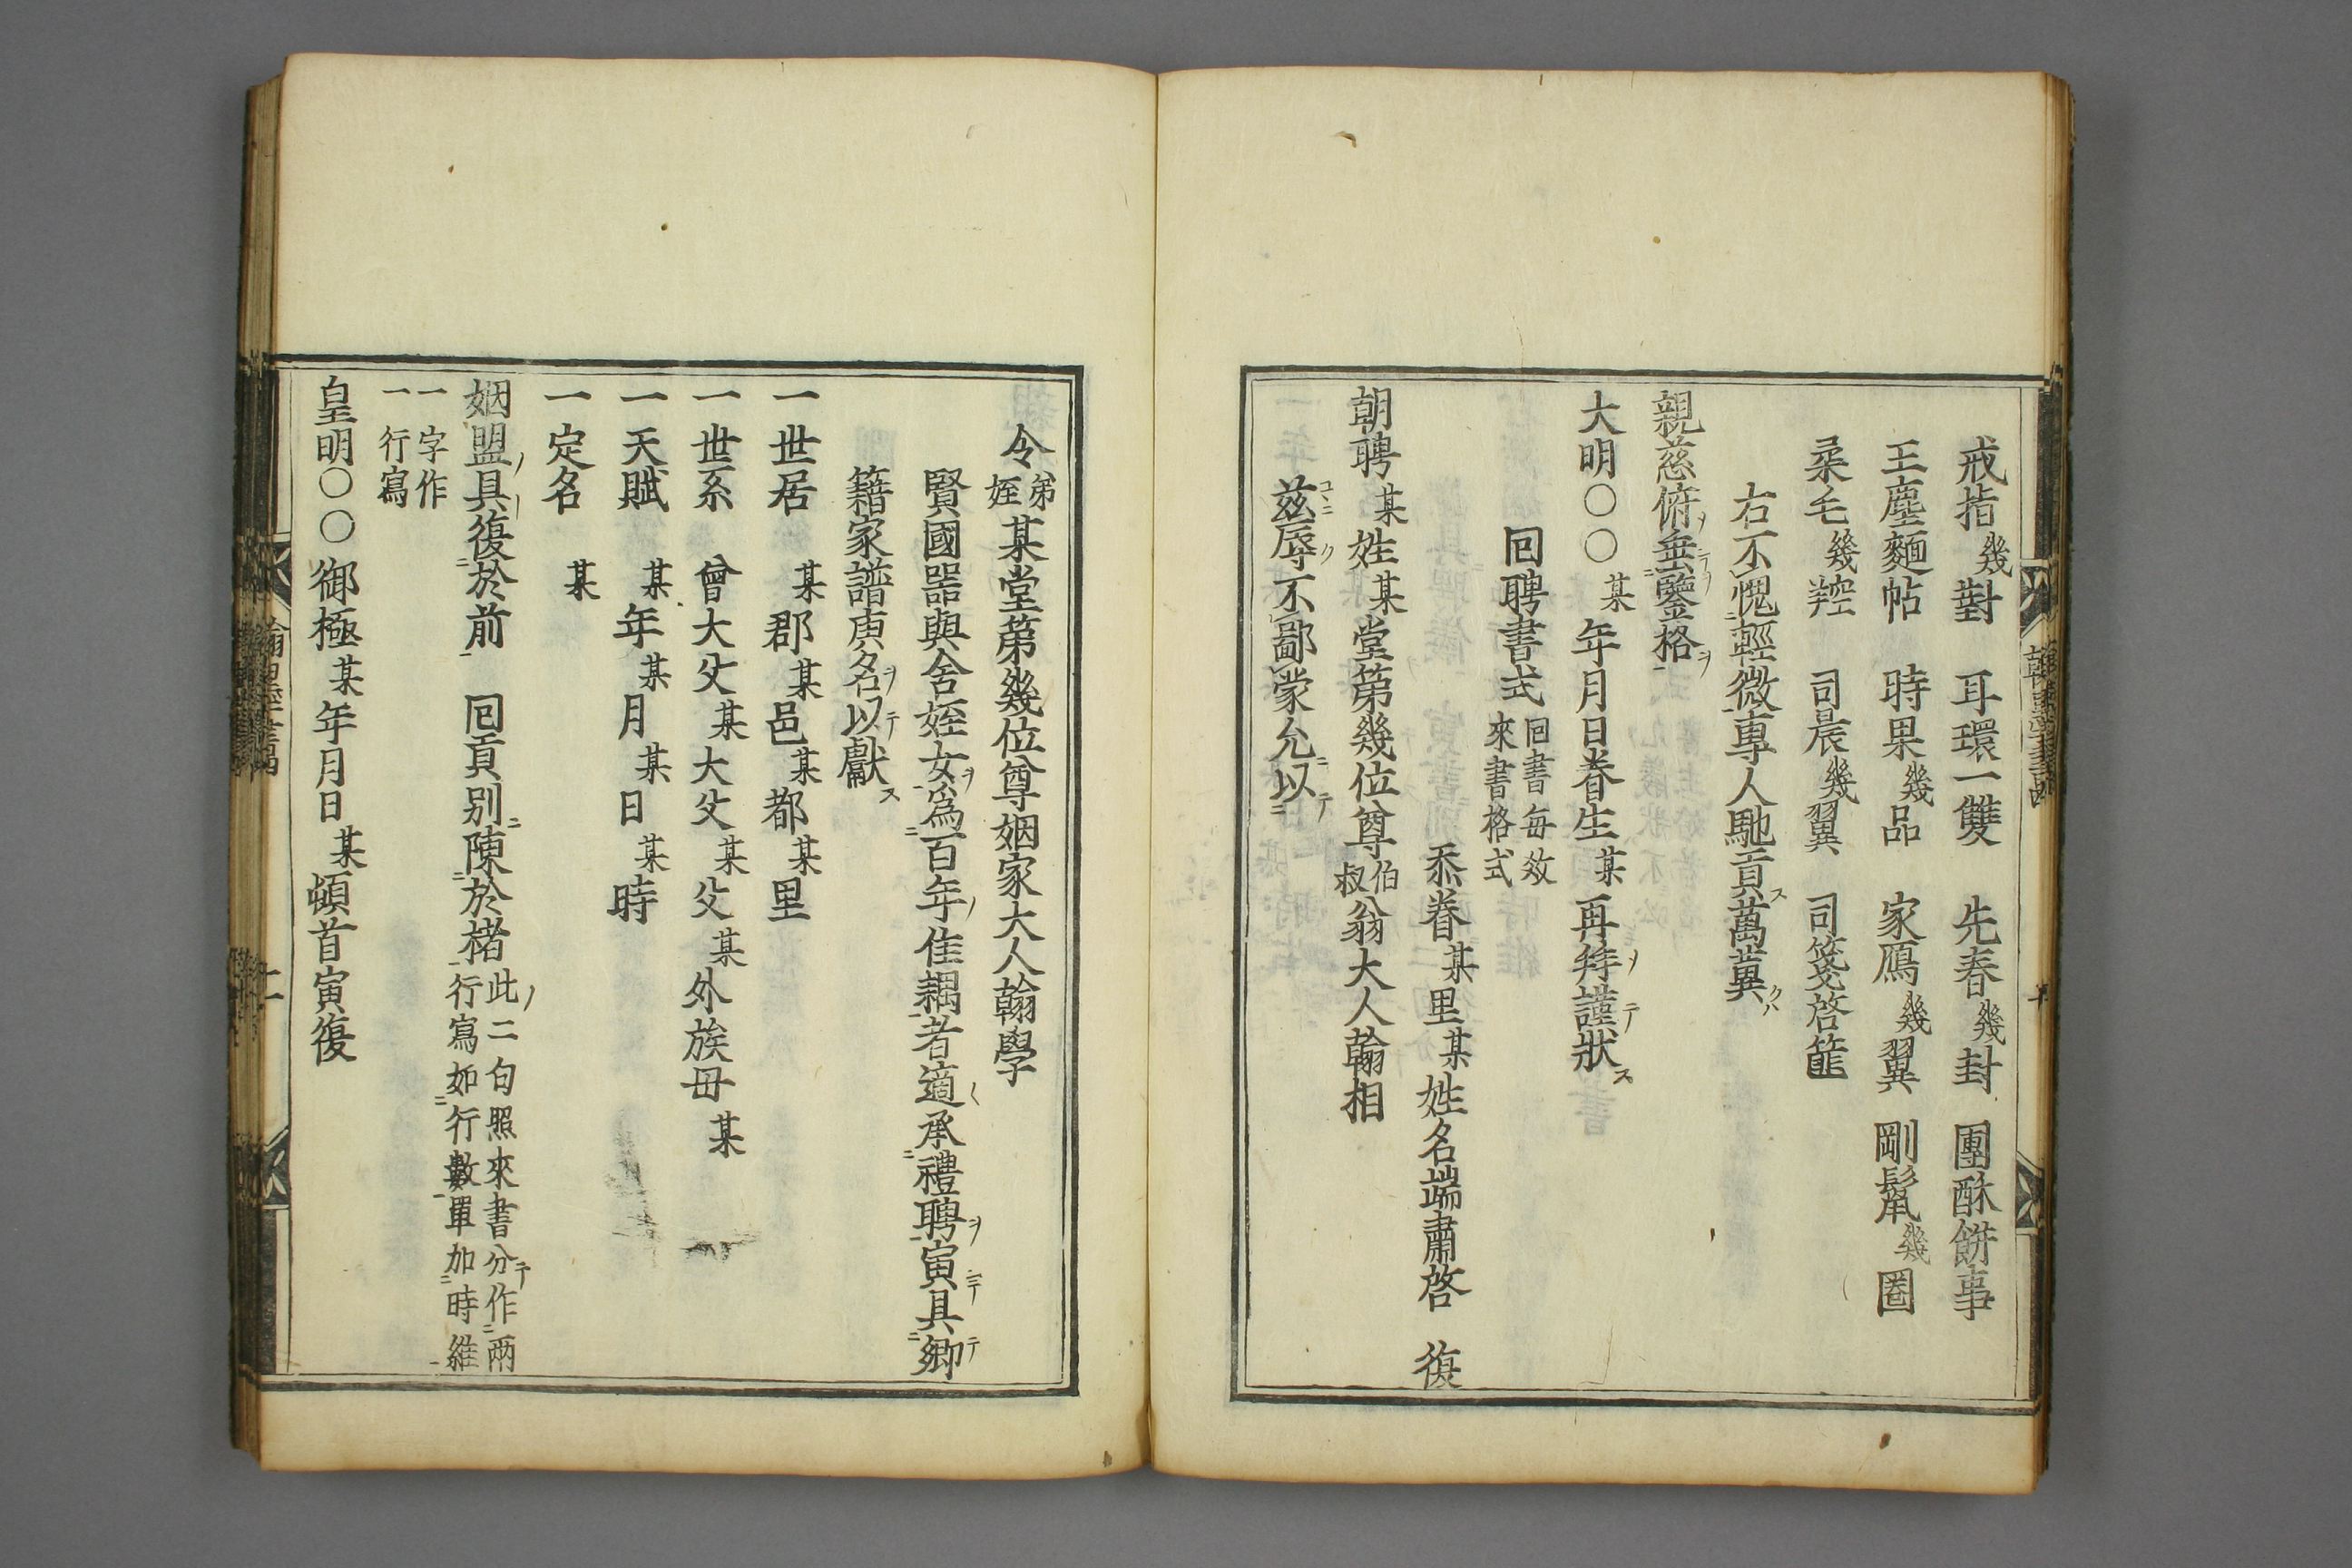 戒指幾對　耳環一雙　先春幾封　團酥餅事
玉塵麵帖　時果幾品　家鴈幾翼　剛鬣幾圈
柔毛幾羫　司晨幾翼　司箋啓篚
右不愧輕微專人馳貢萬冀
親慈俯垂鑒格
大明〇〇某年月日眷生某再拜謹狀
回聘書式回書每效來書格式
忝眷某里某姓名端肅啓　復
朝聘某姓某堂第幾位尊伯叔翁大人翰相
茲辱不鄙蒙允以
令弟姪某堂第幾位尊姻家大人翰學
賢國器與舍姪女爲百年佳耦者適承禮聘寅具鄉
籍家譜庚名以獻
一世居　某郡某邑某都某里
一世系　曾大父某大父某父某外族母某
一天賦　某年某月某日某時
一定名　某
姻盟具復於前　回貢別陳於楮此二句照來書分作兩行寫如行數單加時維
一字作一行寫
皇明〇〇御極某年月日某頓首寅復